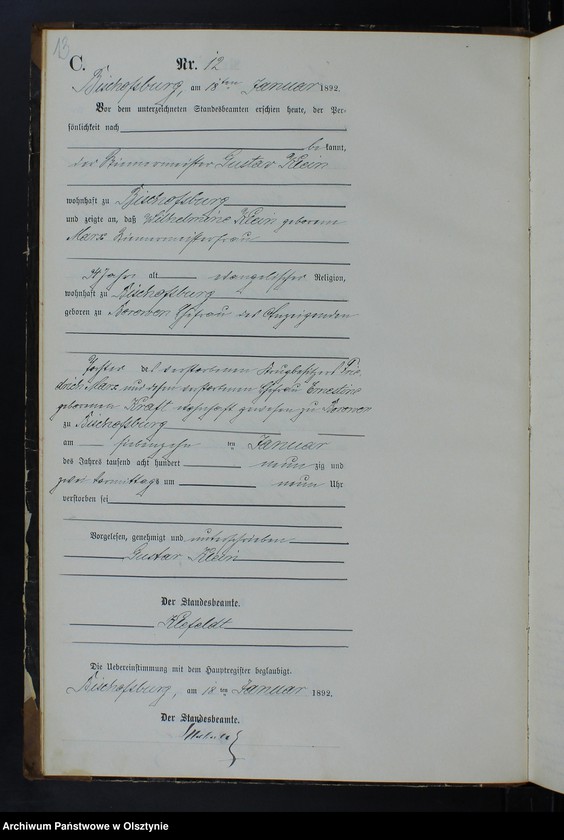 13
C.
Nr. 12
Bischofsburg, am 18ten Januar 1892.
Vor dem unterzeichneten Standesbeamten erschien heute, der Per-
sönlichkeit nach
be kannt,
der Riemermeister Gustav Klein
wohnhaft zu Bischofsburg
und zeigte an, daß Wilhelmine Klein geborene
Marx Riemermeisterfrau
Jahre alt evangelischer Religion,
wohnhaft zu Bischofsburg
geboren zu Ehefrau des Anzeigenden
Tochter des verstorbenen Krugbesitzers Frie-
drich Marx und dessen verstorbenen Ehefrau Ernestine
geborenen Kraft wohnhaft gewesen zu
zu Bischofsburg
am siebenzehn ten Januar
des Jahres tausend acht hundert neun zig und
zwei Vormittags um neun Uhr
verstorben sei
Vorgelesen, genehmigt und unterschrieben
Gustav Klein
Der Standesbeamte.
Klefeldt
Die Uebereinstimmung mit dem Hauptregister beglaubigt.
Bischofsburg, am 18ten Januar 1892.
Der Standesbeamte.
Archiwum Państwowe w Olsztynie